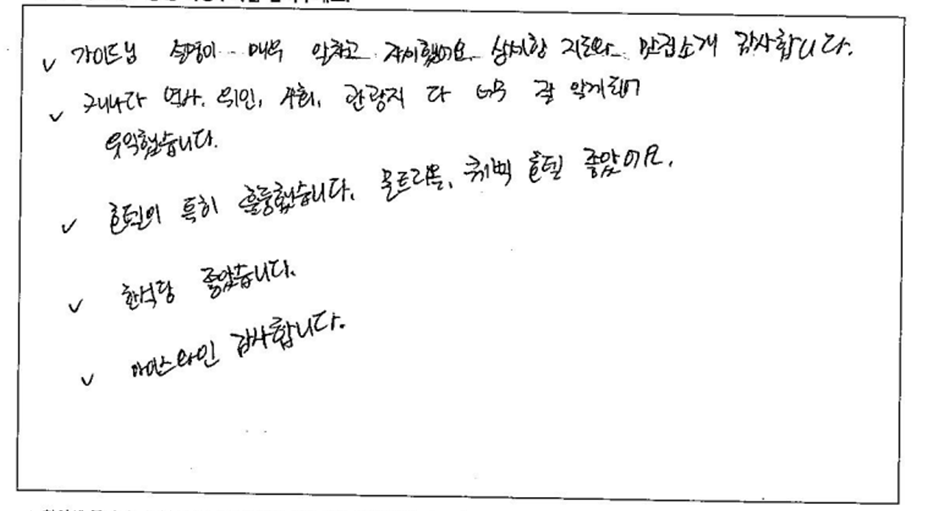 ✓ 가이드님 설명이 매우 알차고 자세했어요. 상세한 지도와 맛집소개 감사합니다.
✓ 캐나다 역사, 위인, 사회, 관광지 다 너무 잘 알게되어
유익했습니다.
✓ 호텔이 특히 훌륭했습니다. 몬트리올, 퀘벡 호텔 좋았어요.
✓ 한식당 좋았습니다.
✓ 아이스와인 감사합니다.